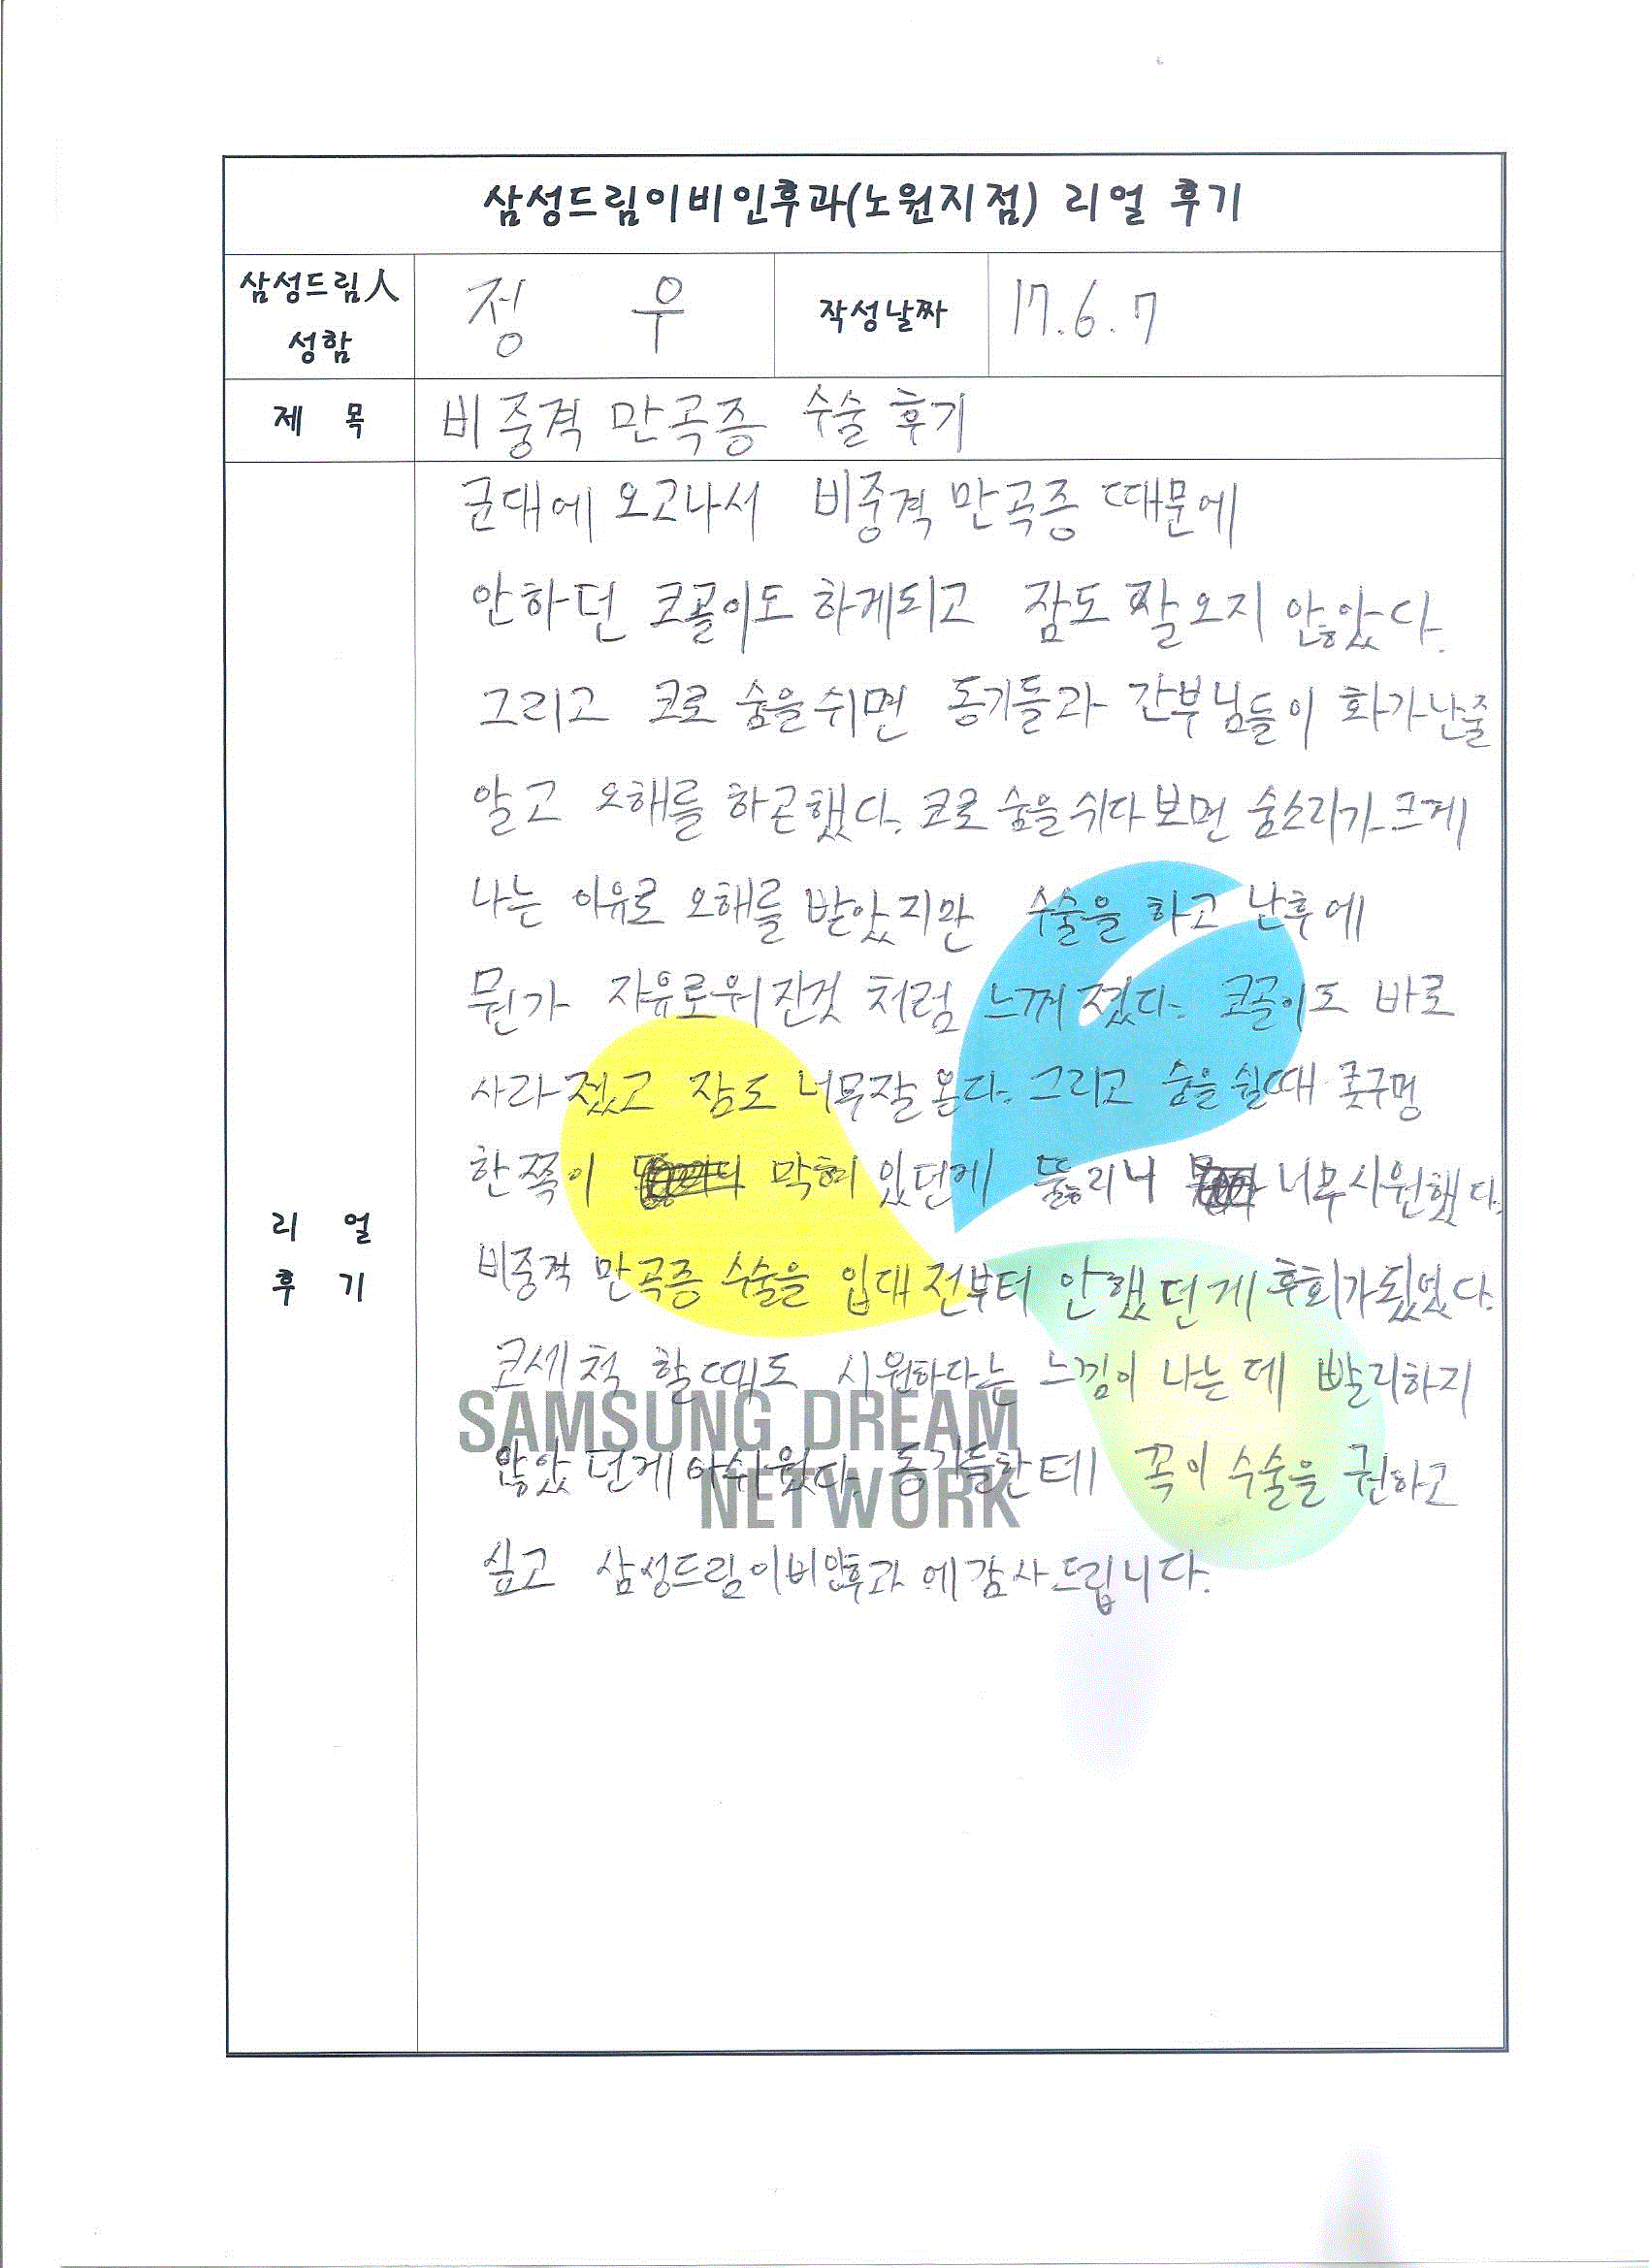 삼성드림이비인후과(노원지점) 리얼 후기
삼성드림人 성함
정 우
작성날짜
17.6.7
제 목
비중격 만곡증 수술 후기
리 얼 후 기
군대에 오고나서 비중격 만곡증 때문에
안하던 코골이도 하게되고 잠도 잘 오지 않았다.
그리고 코로 숨을쉬면 동기들과 간부님들이 화가난줄
알고 오해를 하곤했다. 코로 숨을 쉬다보면 숨소리가 크게
나는 이유로 오해를 받았지만 수술을 하고 난후에
뭔가 자유로워진것 처럼 느껴졌다. 코골이도 바로
사라졌고 잠도 너무잘 온다. 그리고 숨을 쉴때 콧구멍
한쪽이 막혀 있던게 뚫리니 너무시원했다.
비중격 만곡증 수술을 입대 전부터 안했던게 후회가됬었다.
코세척 할때도 시원하다는 느낌이 나는데 빨리하지
않았던게 아쉬웠다. 동기들한테 꼭이 수술을 권하고
싶고 삼성드림이비인후과에 감사드립니다.
SAMSUNG DREAM
NETWORK